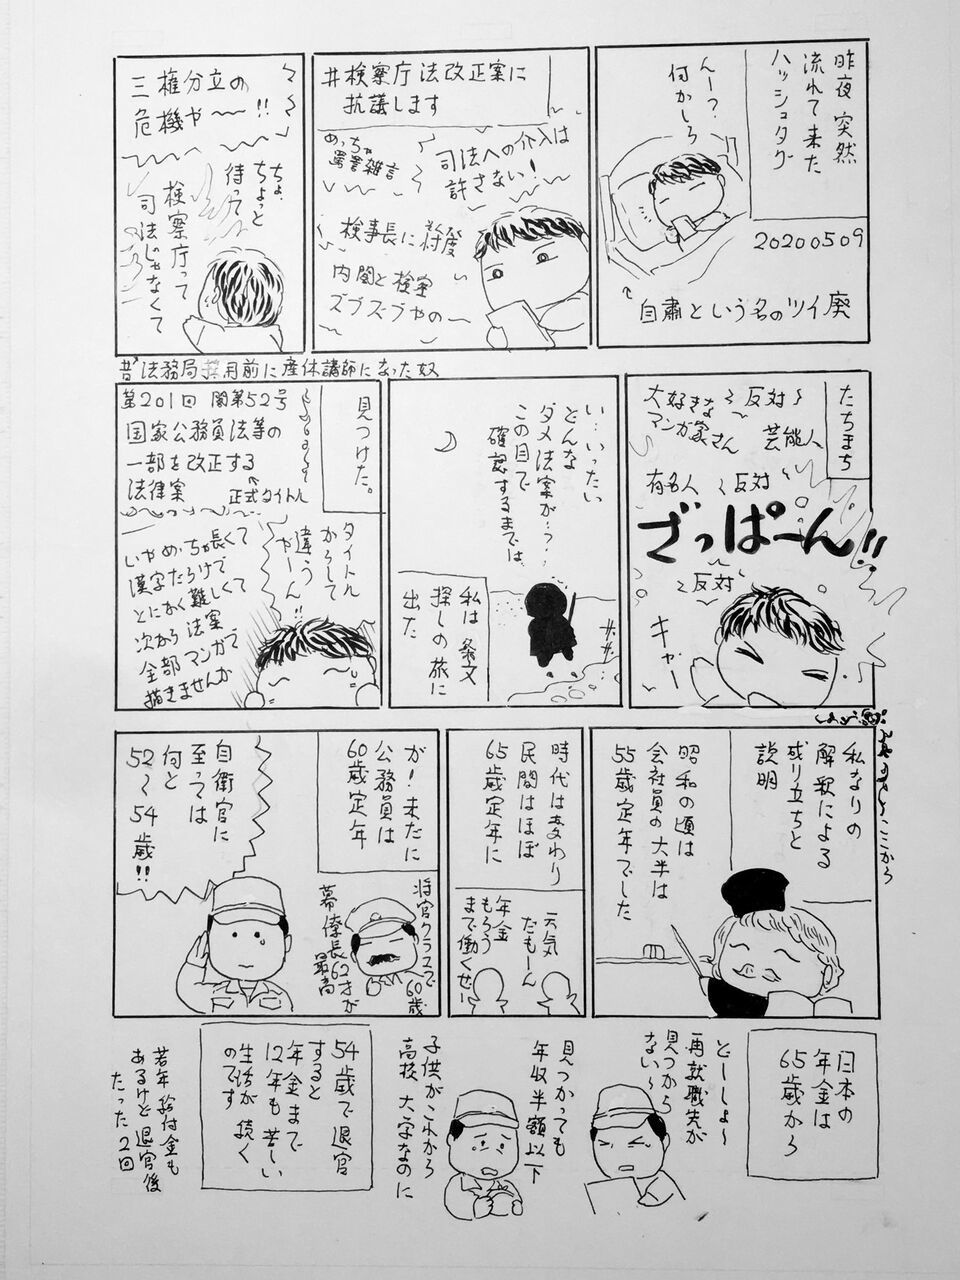 昨夜突然
流れて来た
ハッシュタグ
んー？
何かしろ
20200509
↑
自粛という名のツイ廃
#検察庁法改正案に
抗議します
司法への介入は
許さない！
めっちゃ
罵詈雑言
検事長に
内閣と検察
ズブズブやの〜
三権分立の
危機や〜〜!!
ちょ、
ちょっと
待って
検察庁って
司法じゃなくて
昔法務局採用前に産休講師になった奴
たちまち
〜反対〜
大好きな
マンガ家さん
芸能人
有名人
〜反対
ざっぱーん!!
〜反対
キャー
い…いったい
どんな
ダメ法案が…？
この目で
確認するまでは
私は条文
探しの旅に
出た
見つけた。
第201回 閣第52号
国家公務員法等の
一部を改正する
法律案
↑
正式タイトル
タイトル
からして
違う
やーん!!
いやめっちゃ長くて
漢字だらけで
とにかく難しくて
次から法案
全部マンガで
描きませんか
ここから
私なりの
解釈による
成り立ちと
説明
昭和の頃は
会社員の大半は
55歳定年でした
時代は変わり
民間はほぼ
65歳定年に
天気
たもーん
年金
もらう
まで働くぜー
が！未だに
公務員は
60歳定年
将官クラスで
60歳
幕僚長62才が
最高
自衛官に
至っては
何と
52〜54歳!!
日本の
年金は
65歳から
どーしよ〜
再就職先が
見つから
ない〜
見つかっても
年収半額以下
子供がこれから
高校 大学なのに
54歳で退官
すると
年金まで
12年も苦しい
生活が続く
のです
若年給付金も
あるけど退官後
たった2回